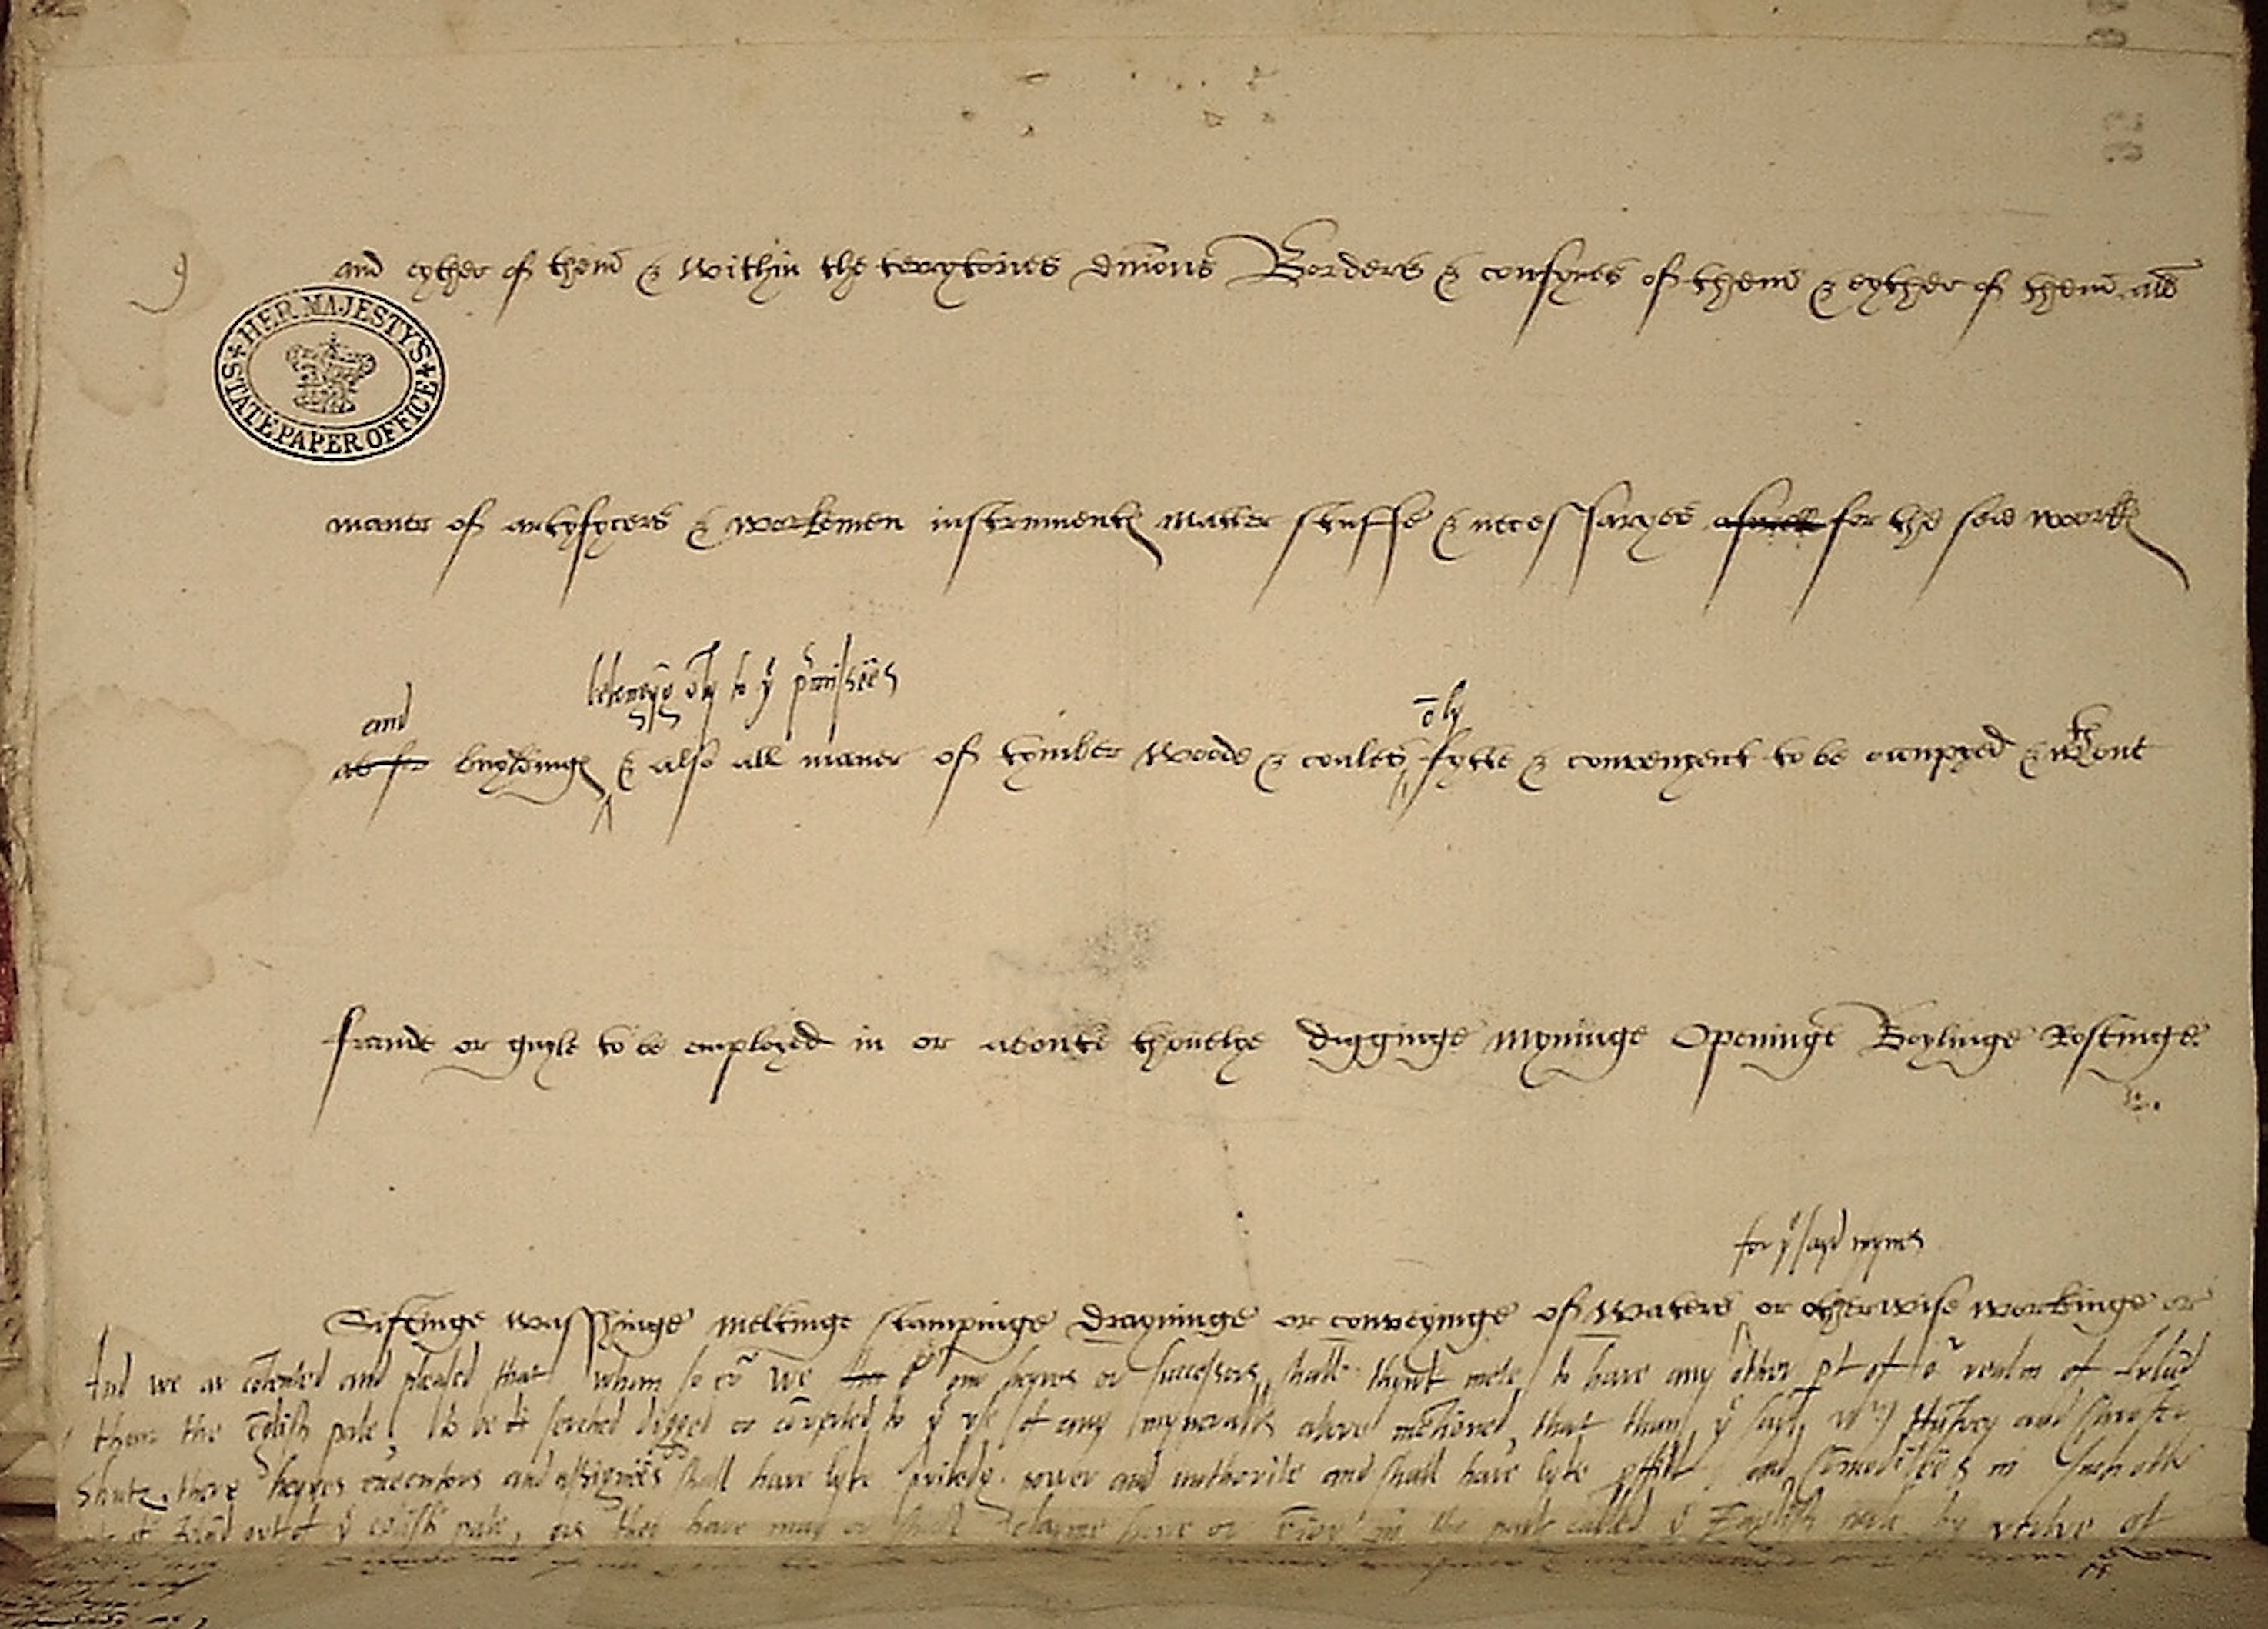 and eyther of them & within the terrytories dmions Borders & confynes of them & eyther of them all
HER MAJESTY'S STATE PAPER OFFICE
maner of artyfycers & workemen instrument matter stuffe & necessaryes aswell for the said work
belongyg oly to ye pmisses
and oly
as for buyldinge & also all maner of tymber woode & coales fytte & convenyent to be occupyed & wthout
fraude or guyle to be employed in or aboute thonelye Digginge Myninge Openinge Boylinge Rostinge
for ye sayd mynes
Siftinge wasshinge meltinge stampinge Drayninge or conveyinge of Waters or otherwise workinge or
And we ar cotented and pleased that whom so eu we or our heyres or successors shall thynk mete to have any other pt of or realm of Irlad
then the Eglish pale to be serched digged or couerted to ye use of any mynerall above metioned that than ye sayd Humfrey and
Shutz there heyres executors and assignees shall have lyke power and authorite and shall have lyke and comodities in such other
of Irlad out of ye eglish pale, as they have may or shall clayme have or in the parte called ye English pale by vertue of